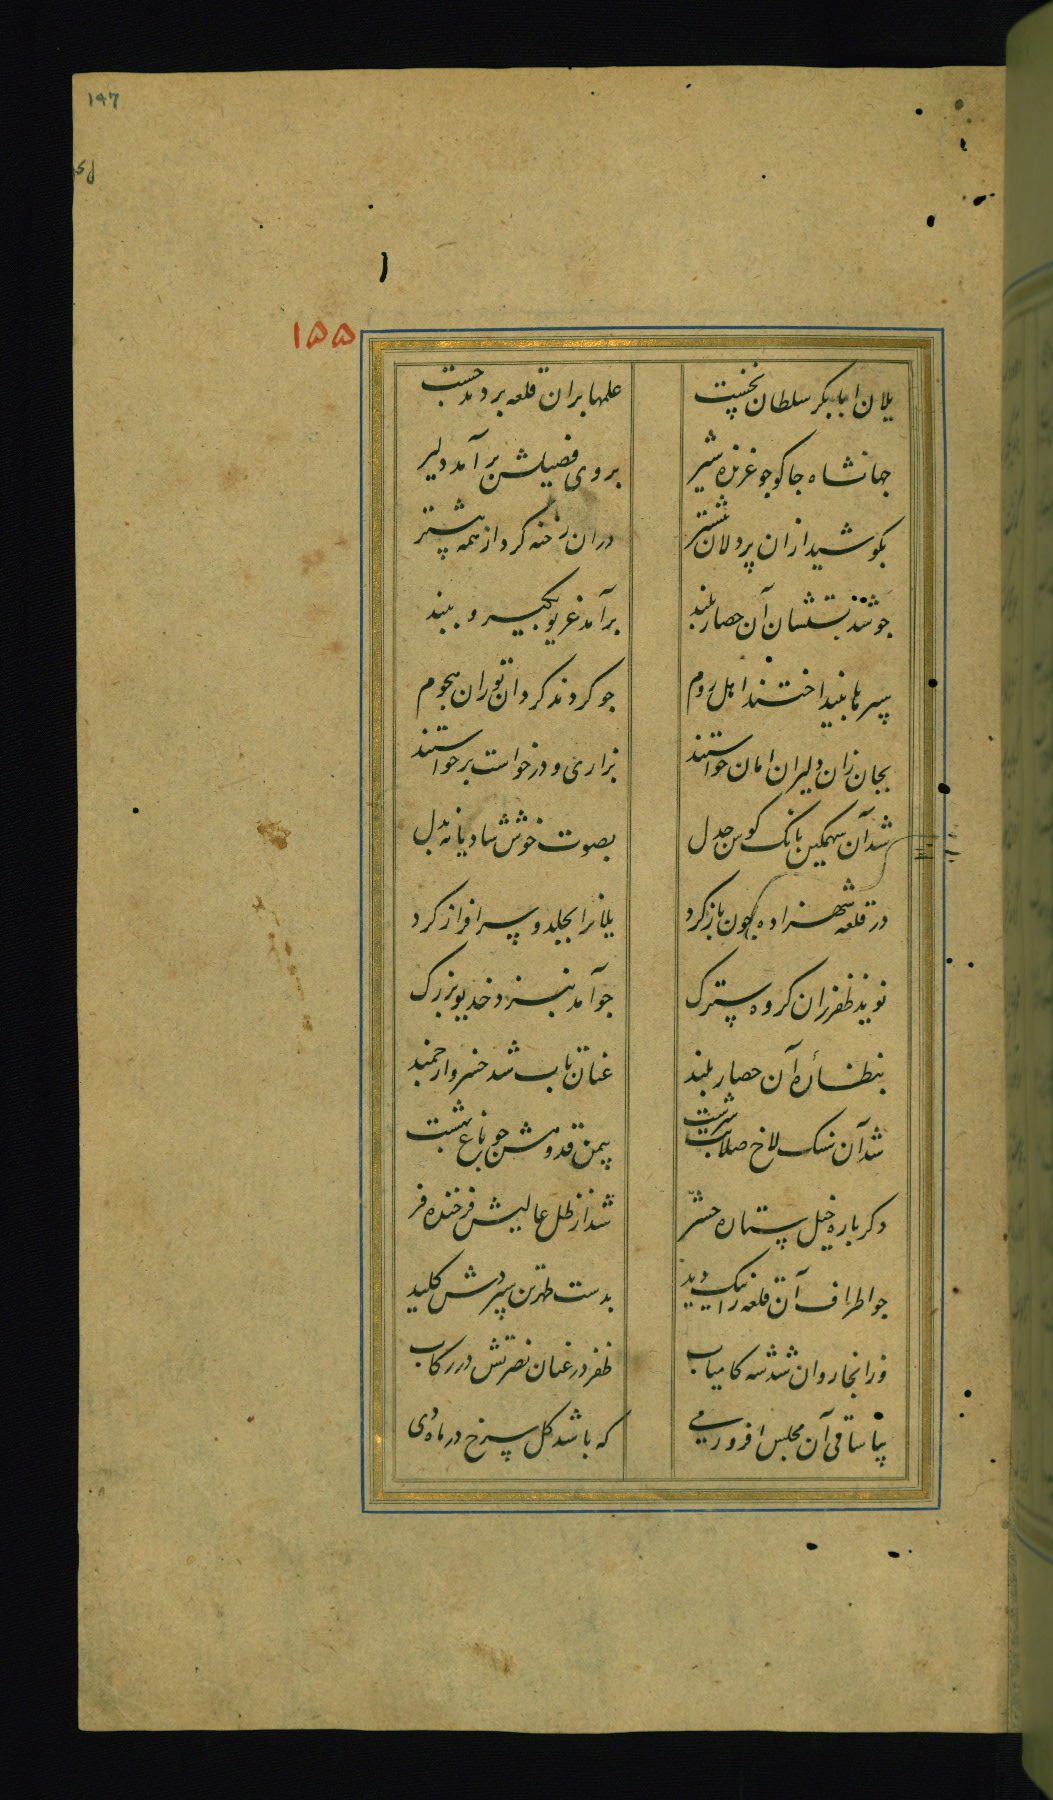 ۱۹۷
۱۵۵
یلان ابابکر سلطان نخست علمها بران قلعه بردند جست
جهانشاه جاکو جو غرنده شیر بروی فصیلش برآمد دلیر
بکوشید ازان پردلان بیشتر دران رخنه کرد از همه پیشتر
جو شد پستشان آن حصار بلند برآمد غریو بگیر و ببند
سپرها بینداختند اهل روم جو کردند کردان توران هجوم
بجان زان دلیران امان خواستند بزاری و درخواست برخواستند
شد آن سهمکین بانک کوس جدل بصوت خوش شادیانه بدل
در قلعه شهزاده چون باز کرد یلانرا بجلدو سرافراز کرد
نوید ظفر زان کروه سترک جو آمد بنزد خدیو بزرک
بنظارهٔ آن حصار بلند عنان تاب شد خسرو ارجمند
شد آن سنک لاخ صلابت سرشت بیمن قدومش جو باغ بهشت
دکر باره خیل ستاره حشر شد از ظل عالیش فرخنده فر
جو اطراف آن قلعه را نیک دید بدست طهرتن سپردش کلید
وز انجا روان شد شه کامیاب ظفر در عنان نصرتش در رکاب
بیا ساقی آن مجلس افروز می که باشد کل سرخ در ماه دی